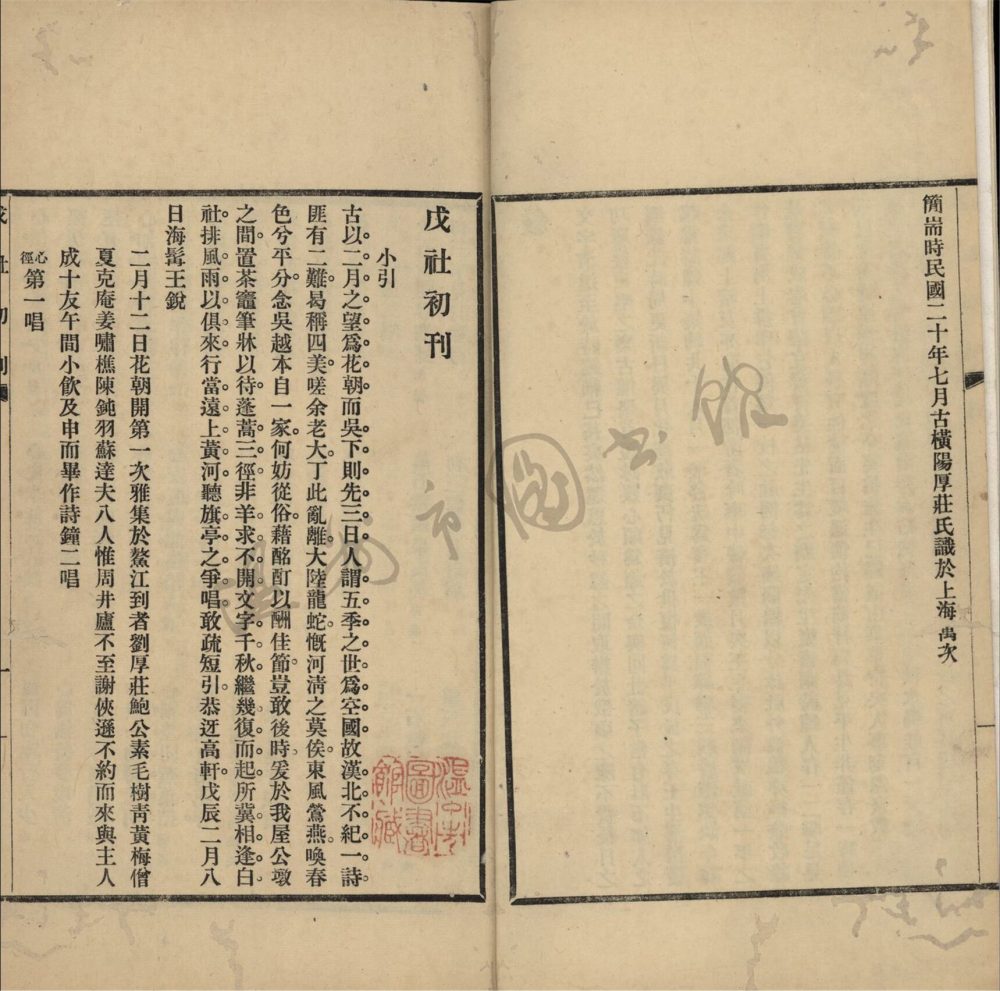 簡耑時民國二十年七月古橫陽厚莊氏識於上海禺次
戊社初刊
小引
古以二月之望爲花朝而吳下則先三日人謂五季之世爲空國故漢北不紀一詩
匪有二難曷稱四美嗟余老大丁此亂離大陸龍蛇慨河淸之莫俟東風鶯燕喚春
色兮平分念吳越本自一家何妨從俗藉酩酊以酬佳節豈敢後時爰於我屋公墩
之間置茶竈筆牀以待蓬蒿三徑非羊求不開文字千秋繼幾復而起所冀相逢白
社排風雨以俱來行當遠上黃河聽旗亭之爭唱敢疏短引恭迓高軒戊辰二月八
日海髯王銳
二月十二日花朝開第一次雅集於鰲江到者劉厚莊鮑公素毛樹靑黃梅僧
夏克庵姜嘯樵陳鈍羽蘇達夫八人惟周井廬不至謝俠遜不約而來與主人
成十友午間小飲及申而畢作詩鐘二唱
心徑第一唱
戊社初刊
一
溫州市圖書館藏
溫州市圖書館